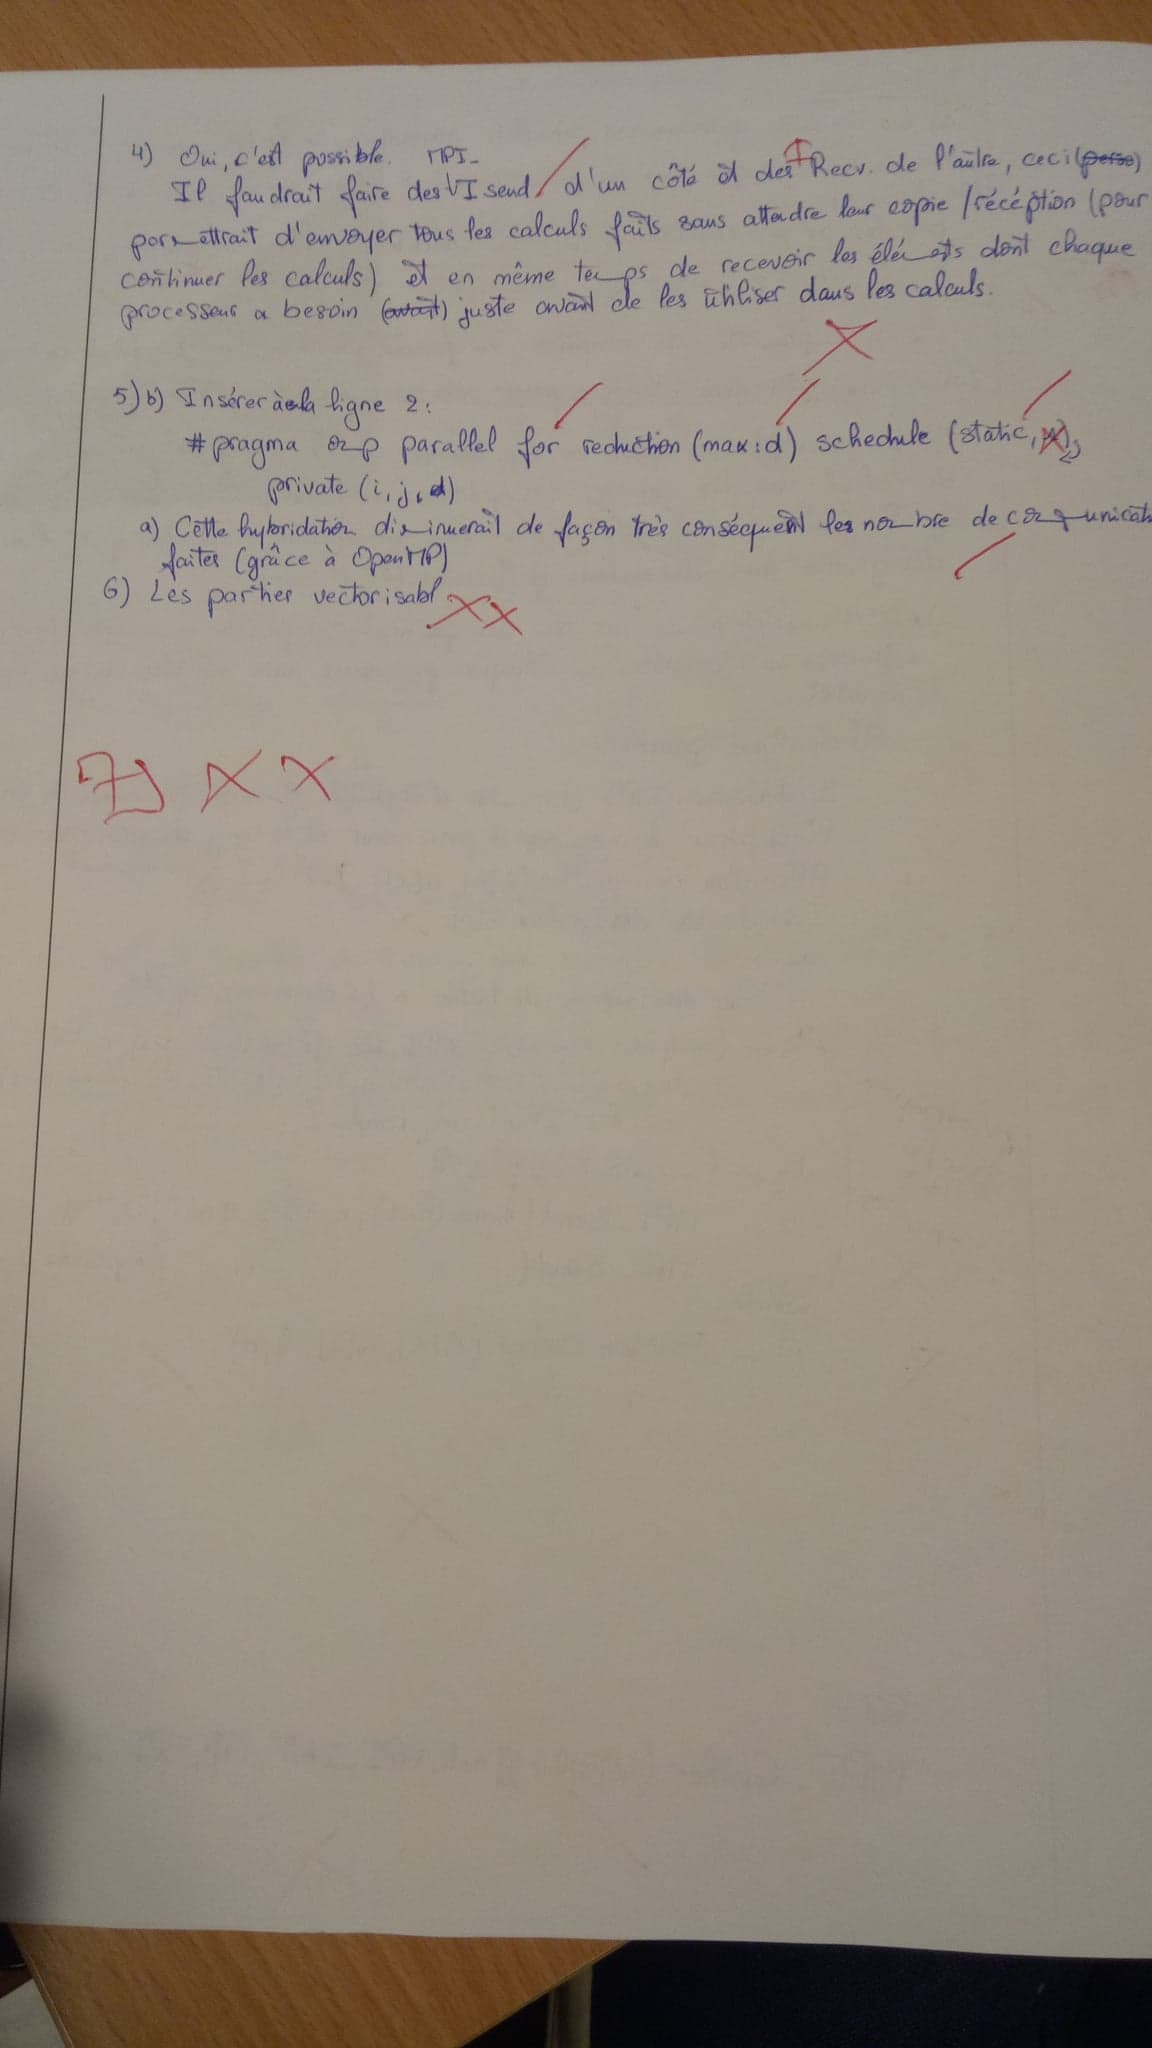 4) Oui, c'est possible. MPI_
Il faudrait faire des Isend d'un côté et des I Recv. de l'autre, ceci (perse)
permettrait d'envoyer tous les calculs faits sans attendre leur copie / récéption (pour
continuer les calculs) et en même temps de recevoir les éléments dont chaque
processeur a besoin (avant) juste avant de les utiliser dans les calculs.
5) b) Insérer à la ligne 2:
#pragma omp parallel for reduction (max:d) schedule (static,
private (i, j, d)
a) Cette hybridation diminuerait de façon très conséquent les nombre de communicat
faites (grâce à OpenMP)
6) Les parties vectorisabl
7) X X